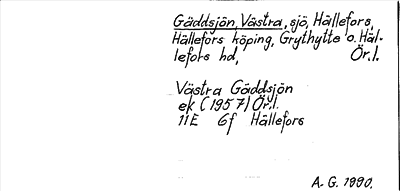 Gäddsjön, Västra, sjö, Hällefors,
Hällefors köping, Grythytte o. Häl-
lefors hd, Ör.l.
Västra Gäddsjön
ek (1957) Ör.l.
11E 6f Hällefors
A. G. 1990.